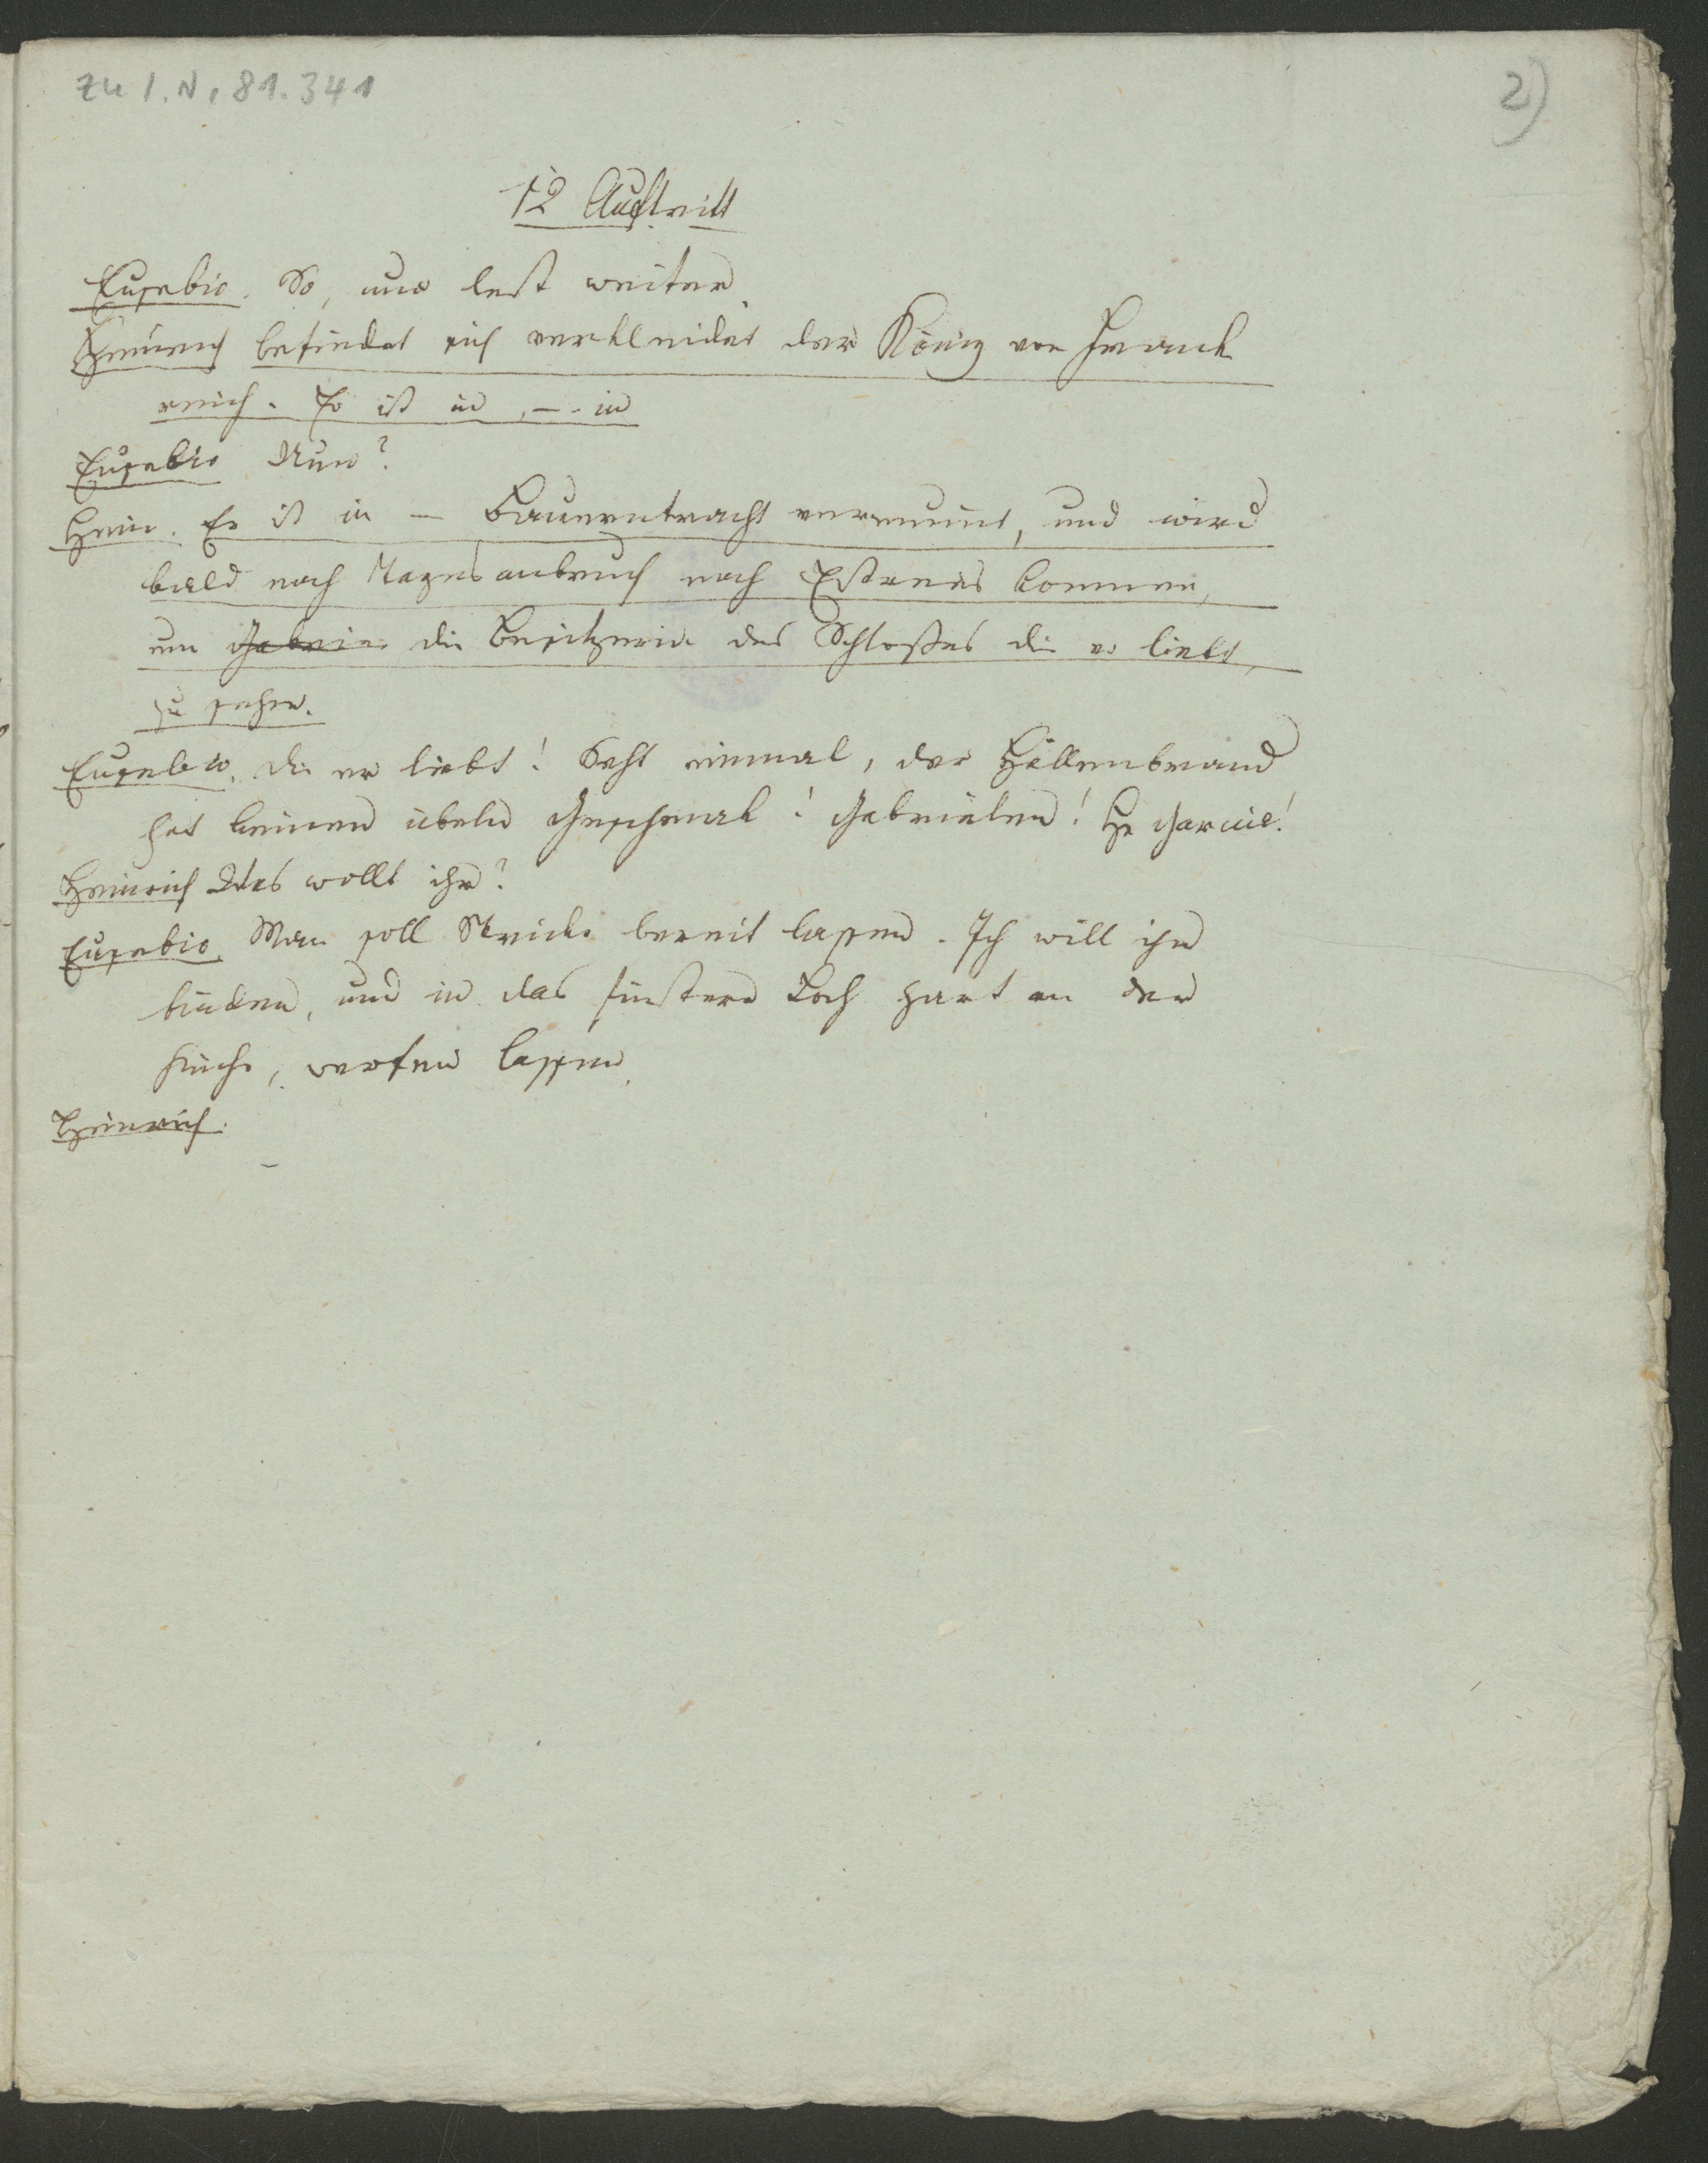 zu I.N. 81.341
2)
12 Auftritt
Eusebio. So, nun lest weiter.
Heinrich befindet sich verkleidet der König von Frank
reich. Er ist in, – in
Eusebio Nun?
Hein. Er ist in – Bauerntracht vermummt, und wird
bald nach Tagesanbruch nach Estrees kommen,
um Gabrie die Besitzerin des Schloßes die er liebt,
zu sehen.
Eusebio. Die er liebt! Seht einmal, der Höllenbrand
hat keinen übeln Geschmak! Gabrielen! He Garcie!
Heinrich Was wollt ihr?
Eusebio. Man soll Stricke bereit lassen. Ich will ihn
binden, und in das finstere Loch hart an der
Küche, werfen lassen.
Heinrich.